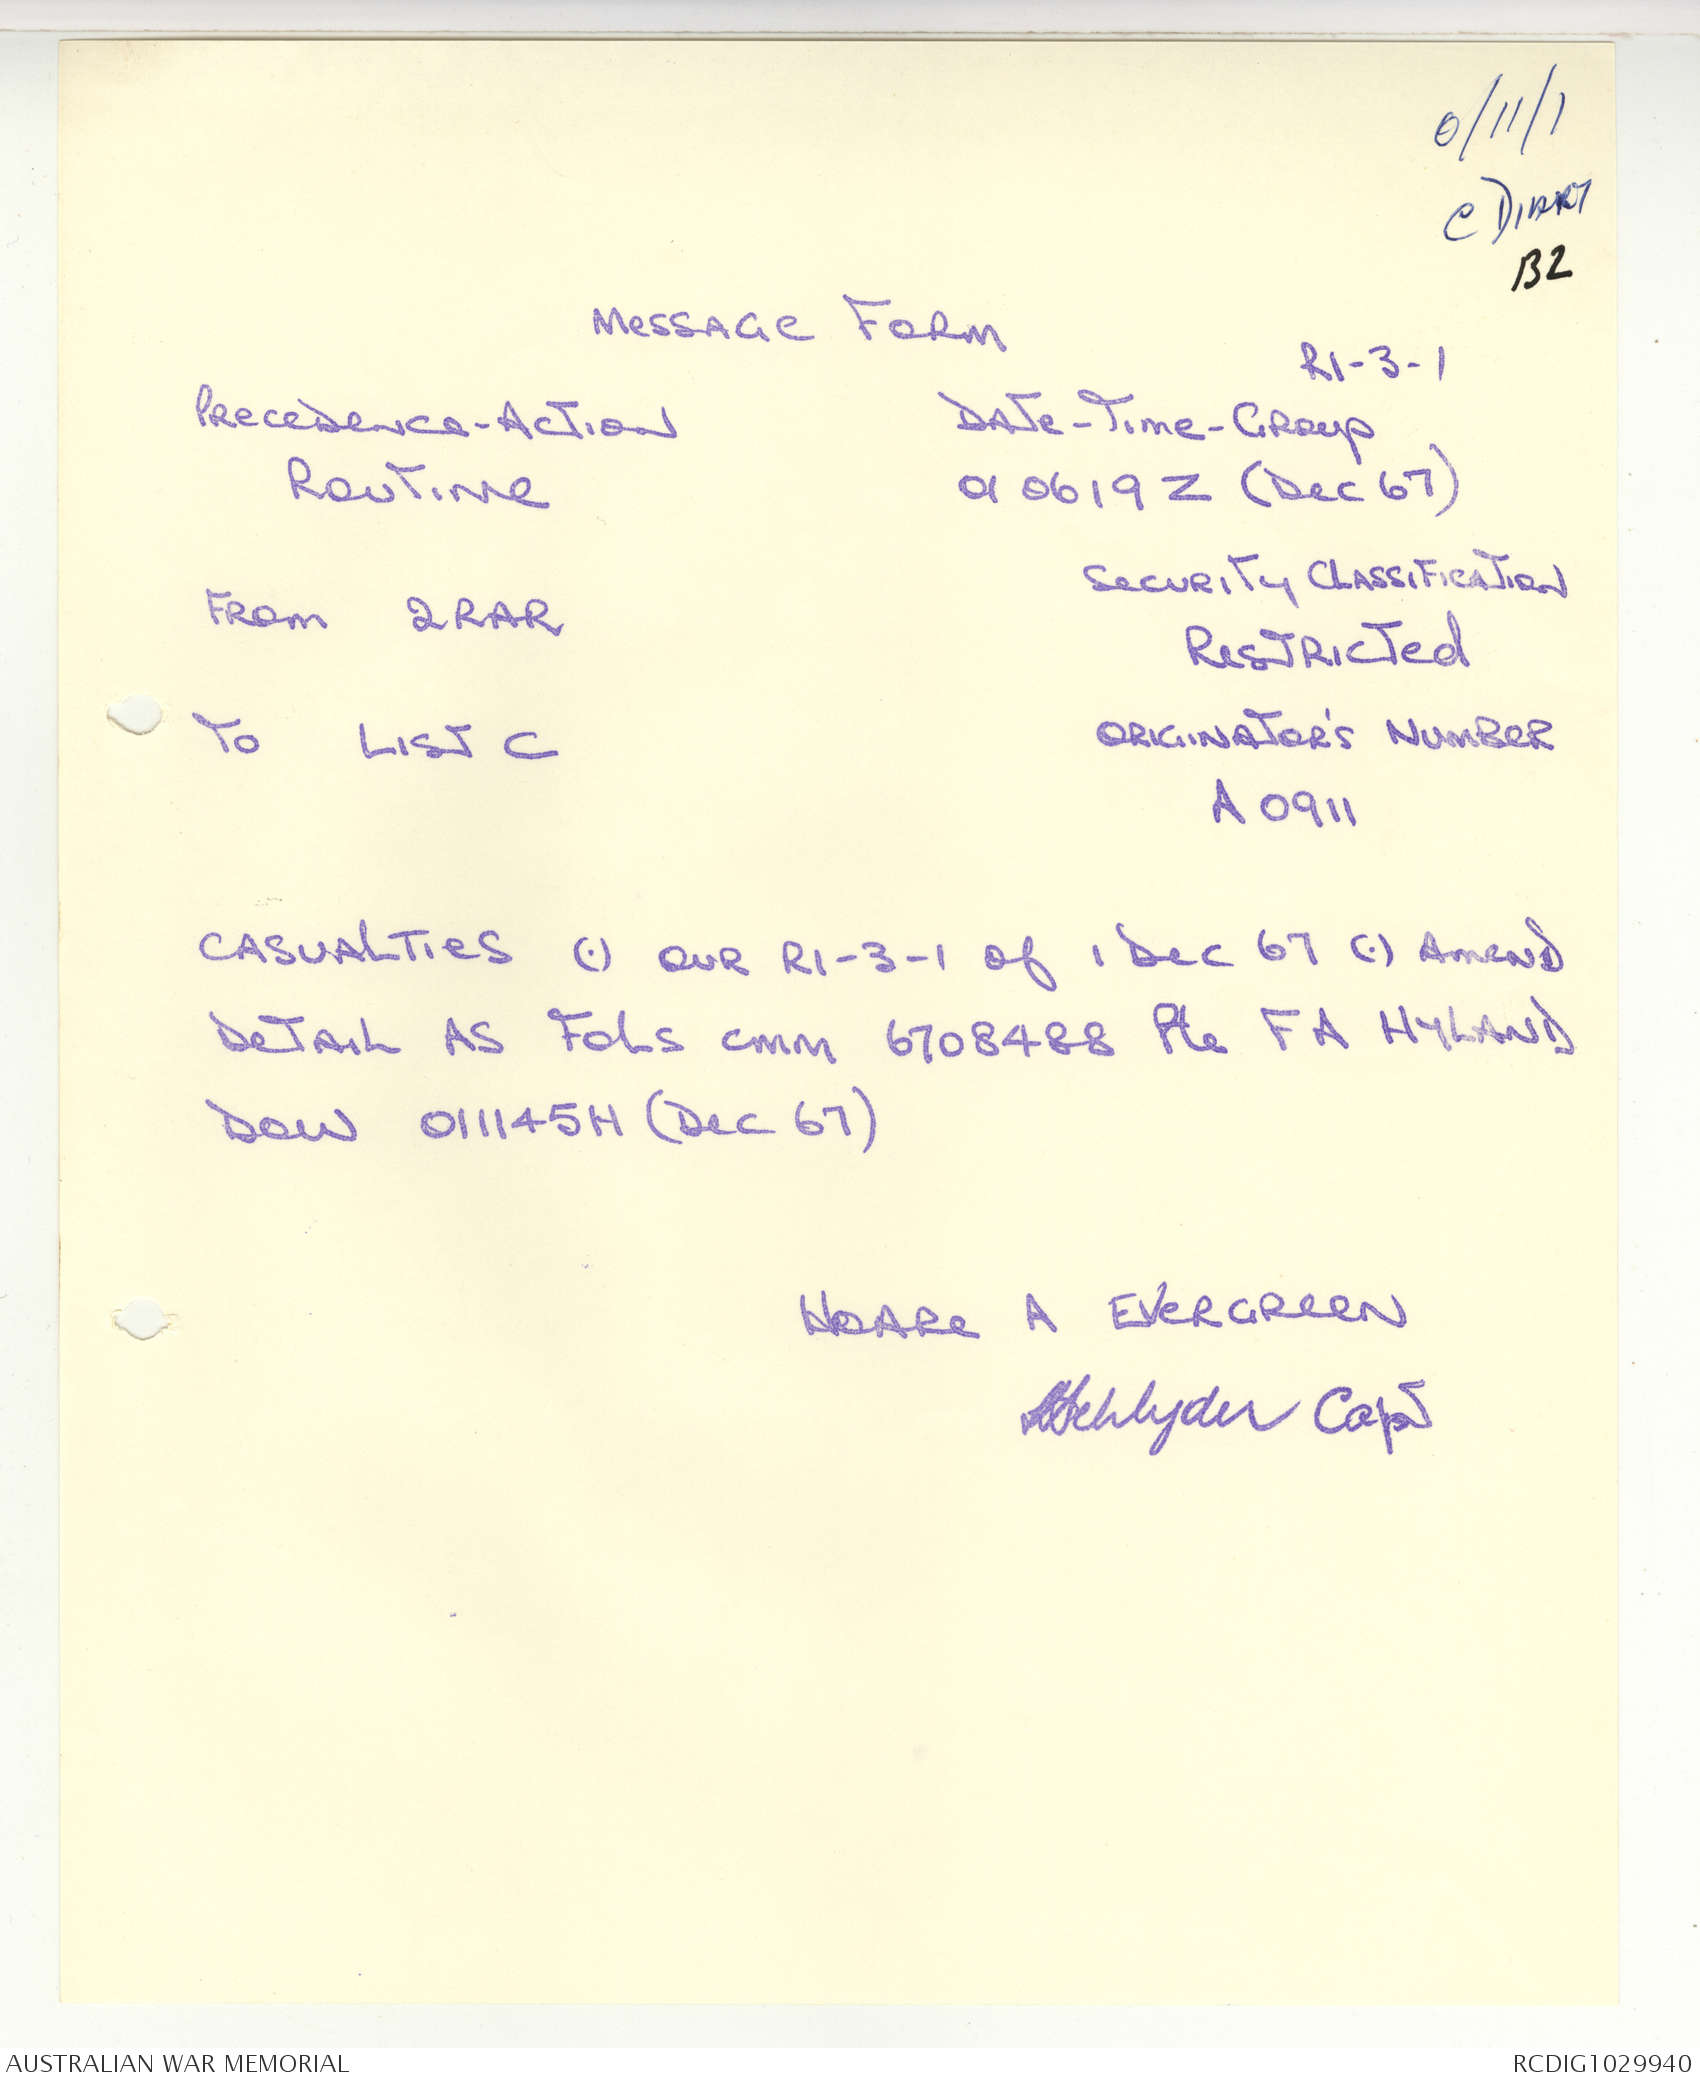 0/11/1
C DIARY
B2
MESSAGE FORM
R1-3-1
PRECEDENCE-ACTION DATE-TIME-GROUP
ROUTINE 010619Z (DEC 67)
SECURITY CLASSIFICATION
FROM 2RAR
RESTRICTED
TO LIST C ORIGINATOR'S NUMBER
A 0911
CASUALTIES (.) OUR R1-3-1 OF 1 DEC 67 (.) AMEND
DETAIL AS FOLS CMM 6708488 Pte F A HYLAND
DOW 011145H (DEC 67)
HOARE A EVERGREEN
Capt
AUSTRALIAN WAR MEMORIAL RCDIG1029940